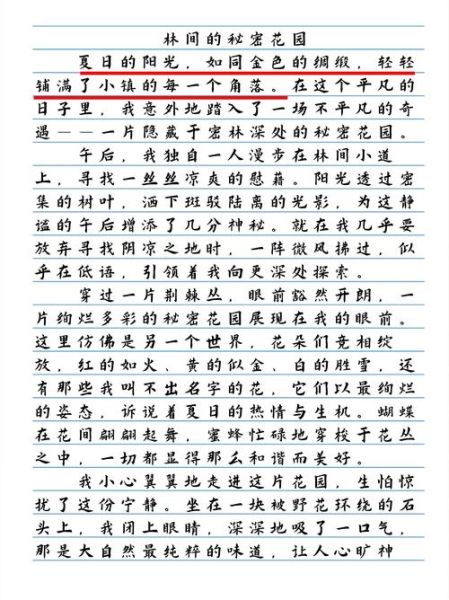 林间的秘密花园
夏日的阳光，如同金色的绸缎，轻轻
铺满了小镇的每一个角落。在这个平凡的
日子里，我意外地踏入了一场不平凡的奇
遇——一片隐藏于密林深处的秘密花园。
午后，我独自一人漫步在林间小道
上，寻找一丝丝凉爽的慰藉。阳光透过密
集的树叶，洒下斑驳陆离的光影，为这静
谧的午后增添了几分神秘。就在我几乎要
放弃寻找阴凉之地时，一阵微风拂过，似
乎在低语，引领着我向更深处探索。
穿过一片荆棘丛，眼前豁然开朗，一
片绚烂多彩的秘密花园展现在我的眼前。
这里仿佛是另一个世界，花朵们竞相绽
放，红的如火、黄的似金、白的胜雪，还
有那些我叫不出名字的花，它们以最绚烂
的姿态，诉说着夏日的热情与生机。蝴蝶
在花间翩翩起舞，蜜蜂忙碌地穿梭于花丛
之中，一切都显得那么和谐而美好。
我小心翼翼地走进这片花园，生怕惊
扰了这份宁静。坐在一块被野花环绕的石
头上，我闭上眼睛，深深地吸了一口气，
那是大自然最纯粹的味道，让人心旷神